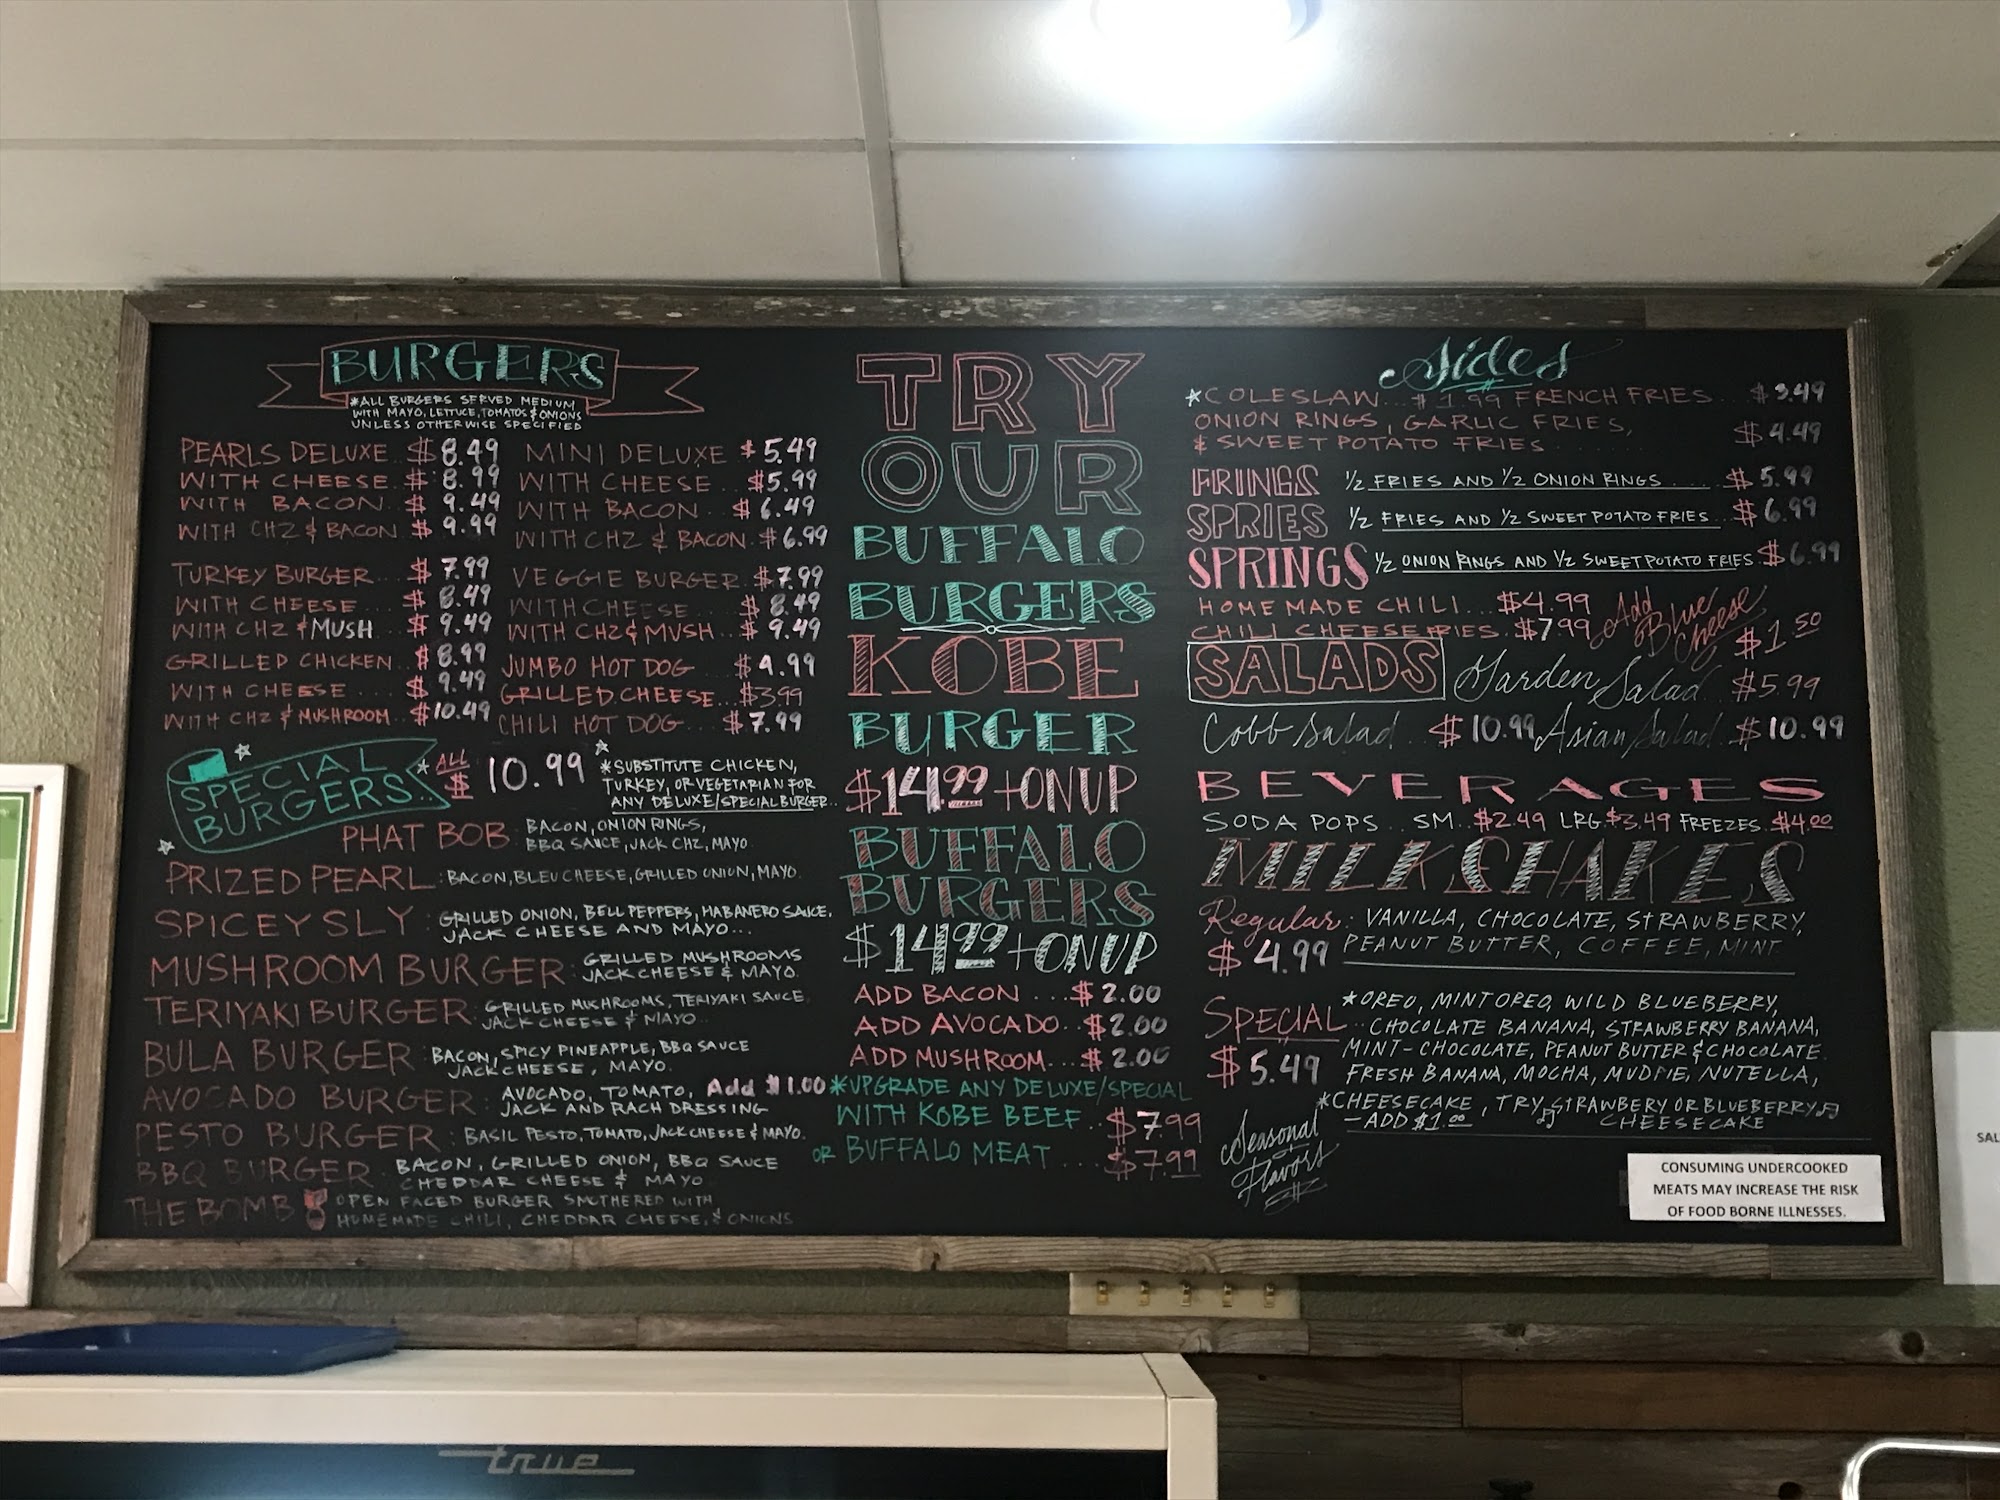 BURGERS
*ALL BURGERS SERVED MEDIUM
WITH MAYO, LETTUCE, TOMATOS & ONIONS
UNLESS OTHERWISE SPECIFIED
PEARLS DELUXE.. $8.49
WITH CHEESE. $8.99
WITH BACON. $9.49
WITH CHZ & BACON $9.99
MINI DELUXE $5.49
WITH CHEESE ..$5.99
WITH BACON.. $6.49
WITH CHZ & BACON. $6.99
TURKEY BURGER... $7.99
WITH CHEESE.... $8.49
WITH CHZ & MUSH. $9.49
VEGGIE BURGER. $7.99
WITH CHEESE... $8.49
WITH CHZ & MUSH.. $9.49
GRILLED CHICKEN.. $8.99
WITH CHEESE .... $9.49
WITH CHZ & MUSHROOM.. $10.49
JUMBO HOT DOG .. $4.99
GRILLED CHEESE...$3.99
CHILI HOT DOG... $7.99
SPECIAL
BURGERS..
*ALL
$10.99
*SUBSTITUTE CHICKEN,
TURKEY, OR VEGETARIAN FOR
ANY DELUXE/SPECIAL BURGER..
PHAT BOB: BACON, ONION RINGS,
BBQ SAUCE, JACK CHZ, MAYO.
PRIZED PEARL: BACON, BLEU CHEESE, GRILLED ONION, MAYO.
SPICEY SLY: GRILLED ONION, BELL PEPPERS, HABANERO SAUCE,
JACK CHEESE AND MAYO...
MUSHROOM BURGER: GRILLED MUSHROOMS
JACK CHEESE & MAYO.
TERIYAKI BURGER: GRILLED MUSHROOMS, TERIYAKI SAUCE
JACK CHEESE & MAYO..
BULA BURGER: BACON, SPICY PINEAPPLE, BBQ SAUCE
JACK CHEESE, MAYO.
AVOCADO BURGER: AVOCADO, TOMATO, Add $1.00
JACK AND RACH DRESSING
PESTO BURGER: BASIL PESTO, TOMATO, JACK CHEESE & MAYO.
BBQ BURGER: BACON, GRILLED ONION, BBQ SAUCE
CHEDDAR CHEESE & MAYO
THE BOMB OPEN FACED BURGER SMOTHERED WITH
HOMEMADE CHILI, CHEDDAR CHEESE, & ONIONS
TRY
OUR
BUFFALO
BURGERS
KOBE
BURGER
$14.99 + ON UP
BUFFALO
BURGERS
$14.99 + ON UP
ADD BACON ...$2.00
ADD AVOCADO..$2.00
ADD MUSHROOM...$2.00
*UPGRADE ANY DELUXE/SPECIAL
WITH KOBE BEEF..$7.99
OR BUFFALO MEAT ....$7.99
Sides
*COLESLAW...$1.99 FRENCH FRIES...$3.49
ONION RINGS, GARLIC FRIES,
& SWEET POTATO FRIES....... $4.49
FRINGS 1/2 FRIES AND 1/2 ONION RINGS .....$5.99
SPRIES 1/2 FRIES AND 1/2 SWEET POTATO FRIES..$6.99
SPRINGS 1/2 ONION RINGS AND 1/2 SWEET POTATO FRIES.$6.99
HOMEMADE CHILI...$4.99
CHILI CHEESE FRIES. $7.99
Add Blue Cheese $1.50
SALADS Garden Salad..$5.99
Cobb Salad ..$10.99 Asian Salad..$10.99
BEVERAGES
SODA POPS...SM..$2.49 LRG.$3.49 FREEZES.$4.00
MILKSHAKES
Regular: VANILLA, CHOCOLATE, STRAWBERRY,
$4.99 PEANUT BUTTER, COFFEE, MINT
SPECIAL *OREO, MINT OREO, WILD BLUEBERRY,
CHOCOLATE BANANA, STRAWBERRY BANANA,
$5.49 MINT-CHOCOLATE, PEANUT BUTTER & CHOCOLATE.
FRESH BANANA, MOCHA, MUDPIE, NUTELLA,
*CHEESECAKE, TRY STRAWBERY OR BLUEBERRY
-ADD $1.00 CHEESECAKE
Seasonal
Flavors
CONSUMING UNDERCOOKED
MEATS MAY INCREASE THE RISK
OF FOOD BORNE ILLNESSES.
SAL
true